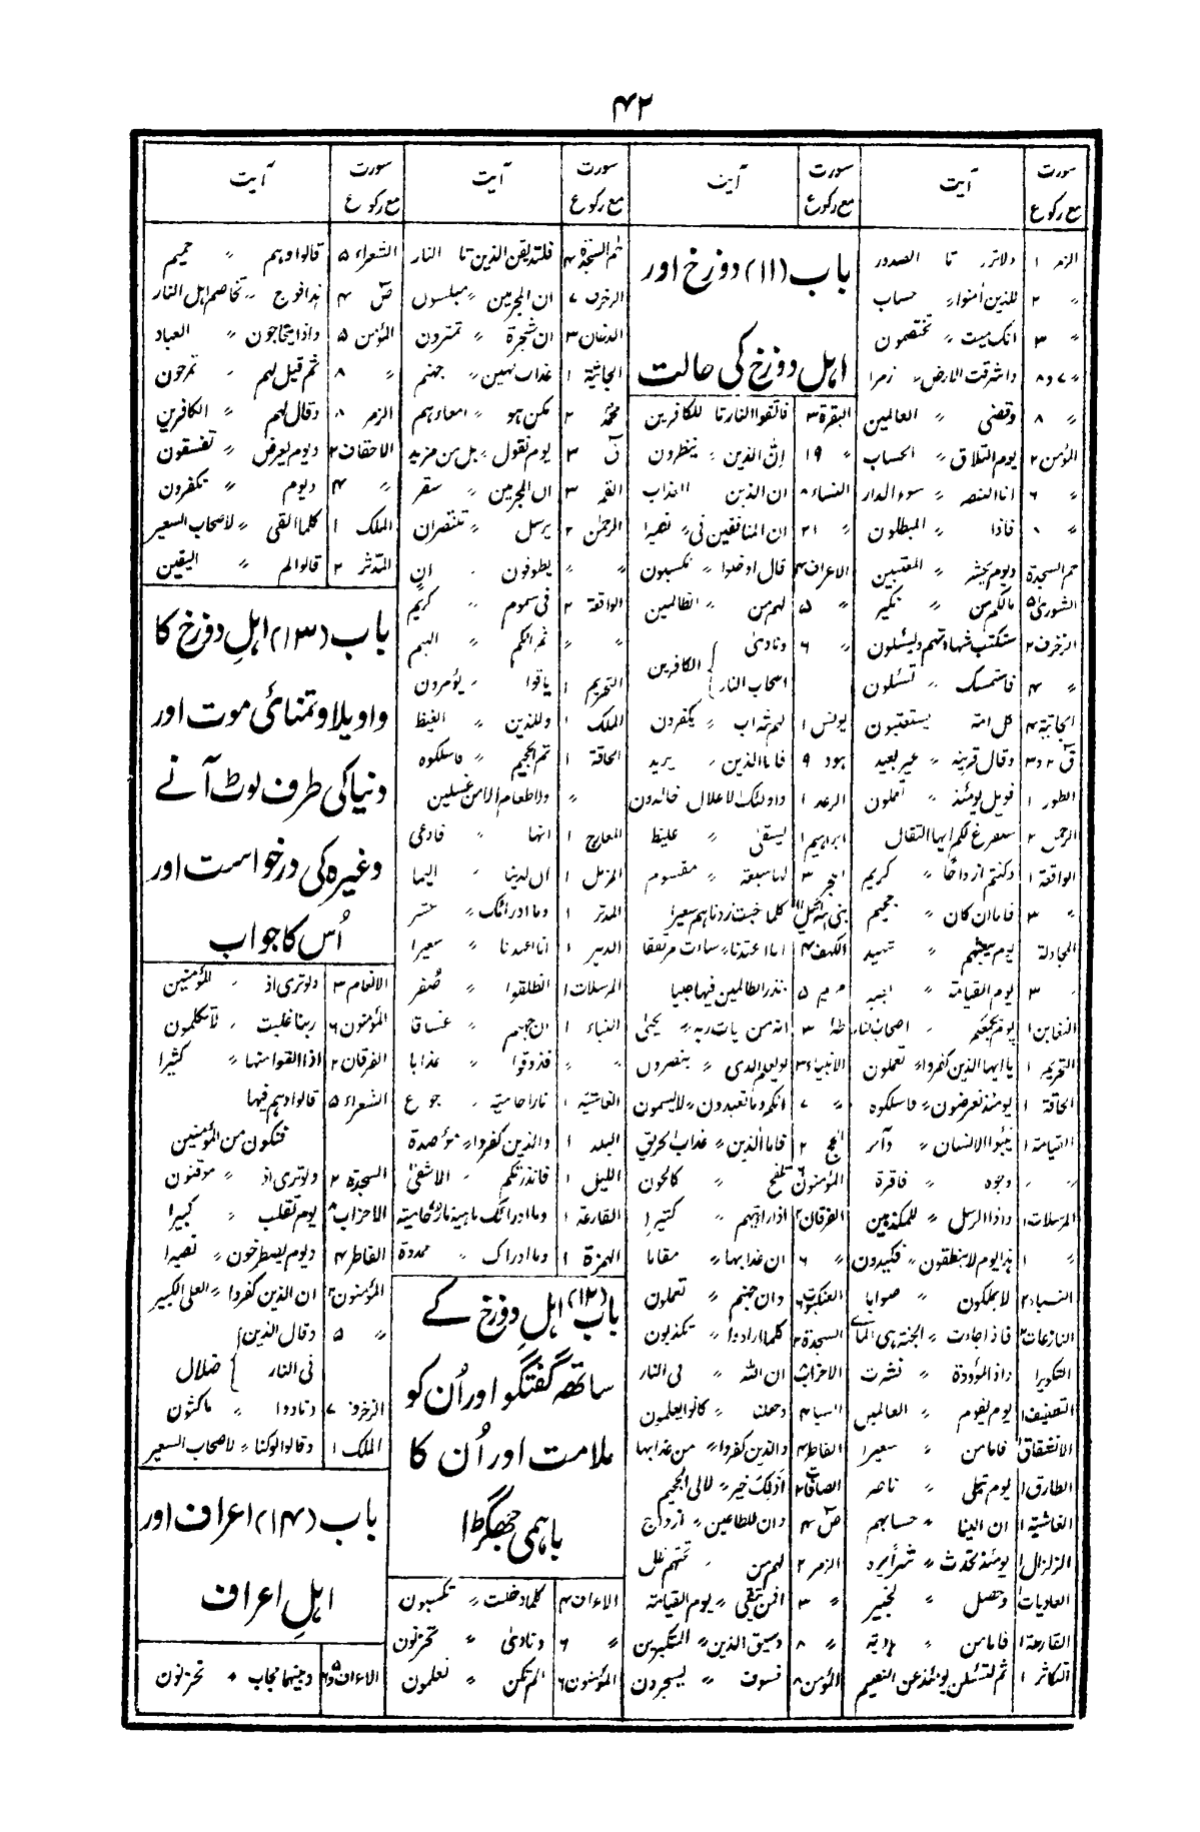 ۴۲
سورت مع رکوع آیت
الزمر ۱ ولاتزر تا الصدور
〃 ۲ للذین اٰمنوا〃 حساب
〃 ۳ انک میت 〃 تختصمون
〃 ۷ و ۸ واشرقت الارض〃 زمرا
〃 ۸ وقضی 〃 العالمین
المؤمن ۲ یوم التلاق 〃 الحساب
〃 ۶ انا لننصر 〃 سوء الدار
〃 ۸ فاذا 〃 المبطلون
حم السجدۃ ویوم یحشر 〃 المعتبین
الشوریٰ ۵ مالکم من 〃 نکیر
الزخرف ۲ ستکتب شہادتہم ویسئلون
〃 ۴ فاستمسک 〃 تسئلون
الجاثیۃ ۴ کل امۃ یستعتبون
قٓ ۲ و ۳ وقال قرینہ 〃 غیر بعید
الطور ۱ فویل یومئذ 〃 تعملون
الرحمٰن ۲ سنفرغ لکم ایہا الثقلان
الواقعۃ ۱ وکنتم ازواجًا 〃 کریم
〃 ۳ فاما ان کان 〃 جحیم
المجادلۃ یوم یبعثہم 〃 شہید
〃 ۳ یوم القیامۃ 〃
التغابن ۱ یوم یجمعکم 〃 اصحاب النار
التحریم ۱ یا ایہا الذین کفروا〃 تعملون
الحاقۃ ۱ یومئذ تعرضون 〃 فاسلکوہ
القیامۃ ۱ ینبؤا الانسان 〃
〃 〃 وجوہ 〃 فاقرۃ
المرسلات ۱ واذا الرسل 〃 للمکذبین
〃 ۱ ہذا یوم لا ینطقون 〃 فکیدون
النباء ۲ لا یملکون 〃 صوابا
النازعات ۲ فاذا جاءت 〃 الجنۃ ہی الماویٰ
التکویر ۱ واذا المؤودۃ 〃 نشرت
التطفیف ۱ یوم یقوم 〃 العالمین
الانشقاق ۱ فاما من 〃 سعیرا
الطارق ۱ یوم تبلی 〃 ناصر
الغاشیۃ ۱ ان الینا 〃 حسابہم
الزلزال ۱ یومئذ تحدث 〃 شرًا یرہ
العادیات ۱ وحصل 〃 لخبیر
القارعۃ ۱ فاما من 〃 ہاویۃ
التکاثر ۱ ثم لتسئلن یومئذ عن النعیم
سورت مع رکوع آیت
باب (۱۱) دوزخ اور
اہل دوزخ کی حالت
البقرۃ ۳ فاتقوا النار تا للکافرین
〃 ۱۹ ان الذین 〃 ینظرون
النساء ۸ ان الذین العذاب
〃 ۲۱ ان المنافقین فی 〃 نصیرا
الاعراف ۴ قال ادخلوا 〃 تکسبون
〃 ۵ لہم من 〃 الظالمین
〃 ۶ ونادیٰ
اصحاب النار } الکافرین
یونس ۱ لہم شراب 〃 یکفرون
ہود ۹ فاما الذین 〃 یرید
الرعد ۱ واولٰئک الاغلال خالدون
ابراہیم ۳ یسقیٰ 〃 غلیظ
الحجر ۳ لہا سبعۃ 〃 مقسوم
بنی اسرائیل ۱۱ کلما خبت زدناہم سعیرا
الکہف ۴ انا اعتدنا 〃 ساءت مرتفقا
مریم ۵ نذر الظالمین فیہا جثیا
طہٰ ۳ انہ من یات ربہ 〃 یحییٰ
الانبیاء ۳ لو یعلم الذی 〃 ینصرون
〃 ۷ انکم وما تعبدون 〃 لا یسمعون
الحج ۲ فاما الذین 〃 عذاب الحریق
المؤمنون ۶ تلفح 〃 کالحون
الفرقان ۲ اذا راتہم 〃 کثیرا
〃 ۶ ان عذابہا 〃 مقاما
العنکبوت ۶ وان جہنم 〃 تعملون
السجدۃ ۲ کلما ارادوا 〃 تکذبون
الاحزاب ان اللہ 〃 فی النار
السبا ۴ وجعلنا 〃 کانوا یعملون
الفاطر ۴ والذین کفروا 〃 من عذابہا
الصافات ۲ اذٰلک خیر 〃 لالی الجحیم
صٓ ۴ وان للطاغین 〃 ازواج
الزمر ۲ لہم من 〃 تحتہم ظلل
〃 ۳ افمن یتقی 〃 یوم القیامۃ
〃 ۸ وسیق الذین 〃 المتکبرین
المؤمن ۸ فسوف 〃 یسجرون
سورت مع رکوع آیت
حٰم السجدۃ ۴ فلنذیقن الذین تا النار
الزخرف ۷ ان المجرمین 〃 مبلسون
الدخان ۳ ان شجرۃ 〃 تمترون
الجاثیۃ ۱ عذاب مہین 〃 جہنم
محمد ۲ کمن ہو 〃 امعاءہم
قٓ ۳ یوم نقول 〃 ہل من مزید
القمر ۳ ان المجرمین 〃 سقر
الرحمٰن ۲ یرسل 〃 تنتصران
〃 〃 یطوفون 〃 اٰن
الواقعۃ ۲ فی سموم 〃 کریم
〃 〃 ثم انکم 〃 الہیم
التحریم ۱ یا قوا 〃 یؤمرون
الملک ۱ وللذین 〃 الغیظ
الحاقۃ ۱ ثم الجحیم 〃 فاسلکوہ
〃 ولا طعام الا من غسلین
المعارج ۱ انہا 〃 فاوعی
المزمل ۱ ان لدینا 〃 الیما
المدثر ۱ وما ادرائک 〃 عشر
الدہر ۱ انا اعتدنا 〃 سعیرا
المرسلات ۱ انطلقوا 〃 صُفر
النباء ۱ ان جہنم 〃 غساقا
〃 〃 فذوقوا 〃 عذابا
الغاشیۃ ۱ نارا حامیۃ 〃 جوع
البلد ۱ والذین کفروا 〃 مؤصدۃ
اللیل ۱ فانذرتکم 〃 الاشقیٰ
القارعۃ ۱ وما ادرائک ماہیۃ نارٌ حامیۃ
الہمزۃ ۱ وما ادراک 〃 ممددۃ
باب (۱۲) اہل دوزخ کے
ساتھ گفتگو اور اُن کو
ملامت اور اُن کا
باہمی جھگڑا
الاعراف ۴ کلما دخلت 〃 تکسبون
〃 ۶ ونادیٰ 〃 تحزنون
المؤمنون ۶ الم تکن 〃 تعلمون
سورت مع رکوع آیت
الشعراء ۵ قالوا وہم 〃 حمیم
صٓ ۴ ہذا فوج 〃 تخاصم اہل النار
المؤمن ۵ واذ یتحاجون 〃 العباد
〃 ۸ ثم قیل لہم 〃 تمرحون
الزمر ۸ وقال لہم 〃 الکافرین
الاحقاف ۲ ویوم یعرض 〃 تفسقون
〃 ۴ ویوم 〃 تکفرون
الملک ۱ کلما القی 〃 لاصحاب السعیر
المدثر ۲ قالوا لم 〃 الیقین
باب (۱۳) اہلِ دوزخ کا
واویلا و تمنائی موت اور
دنیا کی طرف لوٹ آنے
وغیرہ کی درخواست اور
اُس کا جواب
الانعام ۳ ولو تری اذ 〃 المؤمنین
المؤمنون ۶ ربنا غلبت 〃 لا تکلمون
الفرقان ۲ اذا القوا منہا 〃 کثیرا
الشعراء ۵ قالوا وہم فیہا
فنکون من المؤمنین
السجدۃ ۲ ولو تری اذ 〃 موقنون
الاحزاب ۸ یوم تقلب 〃 کبیرا
الفاطر ۴ وہم یصطرخون 〃 نصیرا
المؤمنون ۲ ان الذین کفروا 〃 العلی الکبیر
〃 ۵ وقال الذین
فی النار } ضلال
الزخرف ۷ ونادوا 〃 ماکثون
الملک ۱ وقالوا لوکنا 〃 لاصحاب السعیر
باب (۱۴) اعراف اور
اہلِ اعراف
الاعراف ۵ و ۶ وبینہما حجاب 〃 تحزنون